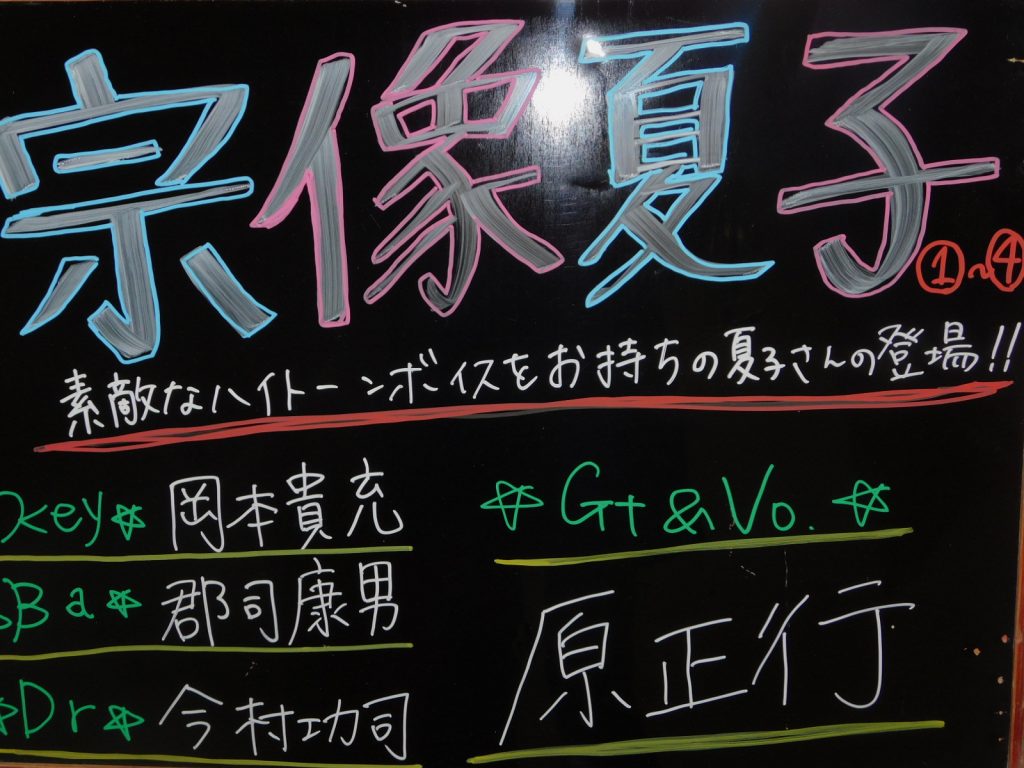 宗像夏子 ①~④
素敵なハイトーンボイスをお持ちの夏子さんの登場!!
key☆ 岡本貴充
Ba☆ 郡司康男
☆Dr☆ 今村功司
☆Gt&Vo.☆
原正行